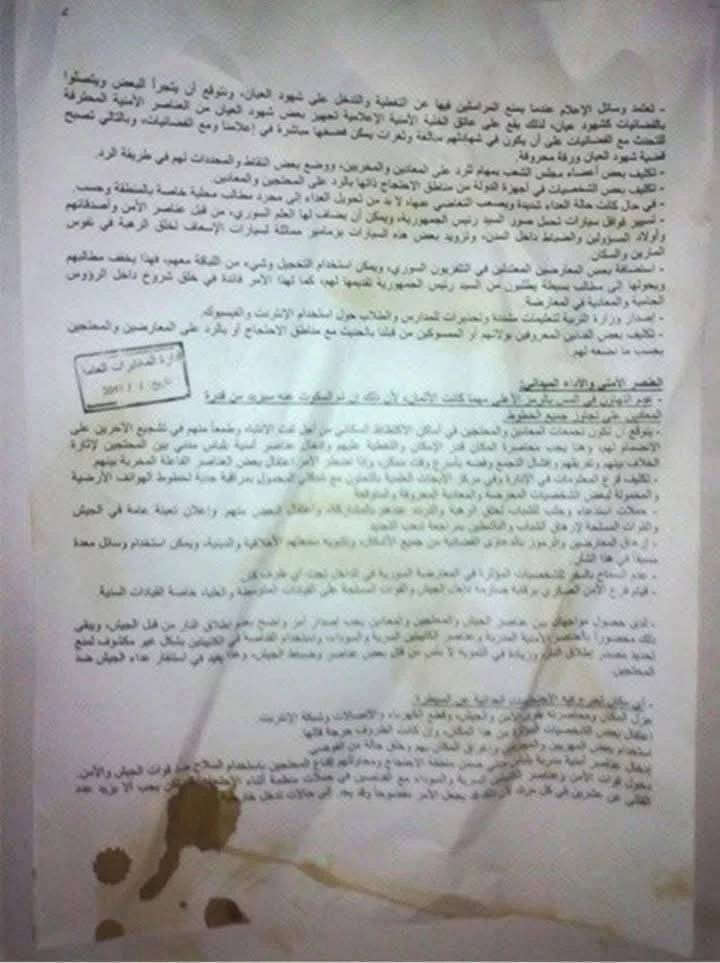 - تعتمد وسائل الإعلام عندما يمنع المراسلين فيها عن التغطية والتدخل على شهود العيان، ونتوقع أن يتجرأ البعض ويتصلوا
بالفضائيات كشهود عيان، لذلك يقع على عاتق الخلية الأمنية الإعلامية تجهيز بعض شهود العيان من العناصر الأمنية المحترفة
للتحدث مع الفضائيات على أن يكون في شهادتهم مبالغة وثغرات يمكن فضحها مباشرة في إعلامنا ومع الفضائيات، وبالتالي تصبح
قضية شهود العيان ورقة محروقة.
- تكليف بعض أعضاء مجلس الشعب بمهام للرد على المعادين والمخربين، ووضع بعض النقاط والمحددات لهم في طريقة الرد.
- تكليف بعض الشخصيات في أجهزة الدولة من مناطق الاحتجاج ذاتها بالرد على المحتجين والمعادين.
- في حال كانت حالة العداء شديدة ويصعب التغاضي عنها، لا بد من تحويل العداء إلى مجرد مطالب محلية خاصة بالمنطقة وحسب.
- تسيير قوافل سيارات تحمل صور السيد رئيس الجمهورية، ويمكن أن يضاف لها العلم السوري، من قبل عناصر الأمن وأصدقائهم
وأولاد المسؤولين والضباط داخل المدن، وتزويد بعض هذه السيارات بزمامير مماثلة لسيارات الإسعاف لخلق الرهبة في نفوس
المارين والسكان.
- استضافة بعض المعارضين المعتدلين في التلفزيون السوري، ويمكن استخدام التخجيل وشيء من اللباقة معهم، فهذا يخفف مطالبهم
ويحولها إلى مطالب بسيطة يطلبون من السيد رئيس الجمهورية تقديمها لهم، كما لهذا الأمر فائدة في خلق شروخ داخل الرؤوس
الحامية والمعادية في المعارضة
- إصدار وزارة التربية لتعليمات مشددة وتحذيرات للمدارس والطلاب حول استخدام الإنترنت والفيسبوك.
- تكليف بعض الفنانين المعروفين بولائهم أو الممسوكين من قبلنا بالحديث مع مناطق الاحتجاج أو بالرد على المعارضين والمحتجين
بحسب ما نضعه لهم.
إدارة المخابرات العامة
العنصر الأمني والأداء الميداني:
- عدم التهاون في المس بالرمز الأعلى مهما كانت الأثمان، لأن ذلك إن تم السكوت عنه سيزيد من قدرة
المعادين على تجاوز جميع الخطوط
- يتوقع أن تكون تجمعات المعادين والمحتجين في أماكن الاكتظاظ السكاني من أجل لفت الانتباه وطمعاً منهم في تشجيع الآخرين على
الانضمام لهم، وهنا يجب محاصرة المكان قدر الإمكان والتغطية عليهم وإدخال عناصر أمنية بلباس مدني بين المحتجين لإثارة
الخلاف بينهم وتفريقهم وإفشال التجمع وفضه بأسرع وقت ممكن، وإذا اضطر الأمر اعتقال بعض العناصر الفاعلة المخربة بينهم
- تكليف فرع المعلومات في الإدارة وفي مركز الأبحاث العلمية بالتعاون مع شبكتي المحمول بمراقبة جدية لخطوط الهواتف الأرضية
والمحمولة لبعض الشخصيات المحرضة والمعادية المعروفة والمتوقعة
- حملات استدعاء وجلب للشباب لخلق الرهبة والتردد عندهم بالمشاركة، واعتقال البعض منهم وإعلان تعبئة عامة في الجيش
والقوات المسلحة لإرهاق الشباب والناشطين بمراجعة شعب التجنيد
- إرهاق المعارضين والرموز بالدعاوى القضائية من جميع الأشكال، وتشويه سمعتهم الأخلاقية والدينية، ويمكن استخدام وسائل معدة
مسبقاً في هذا الشأن
- عدم السماح بالسفر للشخصيات المؤثرة في المعارضة السورية في الداخل تحت أي ظرف كان.
- قيام فرع الأمن العسكري برقابة صارمة داخل الجيش والقوات المسلحة على القيادات المتوسطة والعليا، خاصة القيادات السنية.
- لدى حصول مواجهات بين عناصر الجيش والمحتجين والمعادين يجب إصدار أمر واضح بعدم إطلاق النار من قبل الجيش، ويبقى
ذلك محصوراً بالعناصر الأمنية المدربة وعناصر الكتيبتين السرية والسوداء واستخدام القناصة في الكتيبتين بشكل غير مكشوف لمنع
تحديد مصدر إطلاق النار، وزيادة في التمويه لا بأس من قتل بعض عناصر وضباط الجيش، وهذا يفيد في استنفار عداء الجيش ضد
المحتجين.
- أي مكان تخرج فيه الاحتجاجات العدائية عن السيطرة:
عزل المكان ومحاصرته بقوى الأمن والجيش، وقطع الكهرباء والاتصالات وشبكة الإنترنت.
اعتقال بعض الشخصيات المؤثرة من هذا المكان، وإن كانت الظروف حرجة قتلها
استخدام بعض المهربين والمجرمين وإغراق المكان بهم وخلق حالة من الفوضى
إدخال عناصر أمنية سرية بلباس مدني ضمن منطقة الاحتجاج ومحاولتهم إقناع المحتجين باستخدام السلاح ضد قوات الجيش والأمن.
دخول قوات الأمن وعناصر الكتيبتين السرية والسوداء مع القناصين في حملات منظمة أثناء الاحتجاج يجب ألا يزيد عدد
القتلى عن عشرين في كل مرة، لأن ذلك يجعل الأمر مفضوحاً وقد يجر إلى حالات تدخل